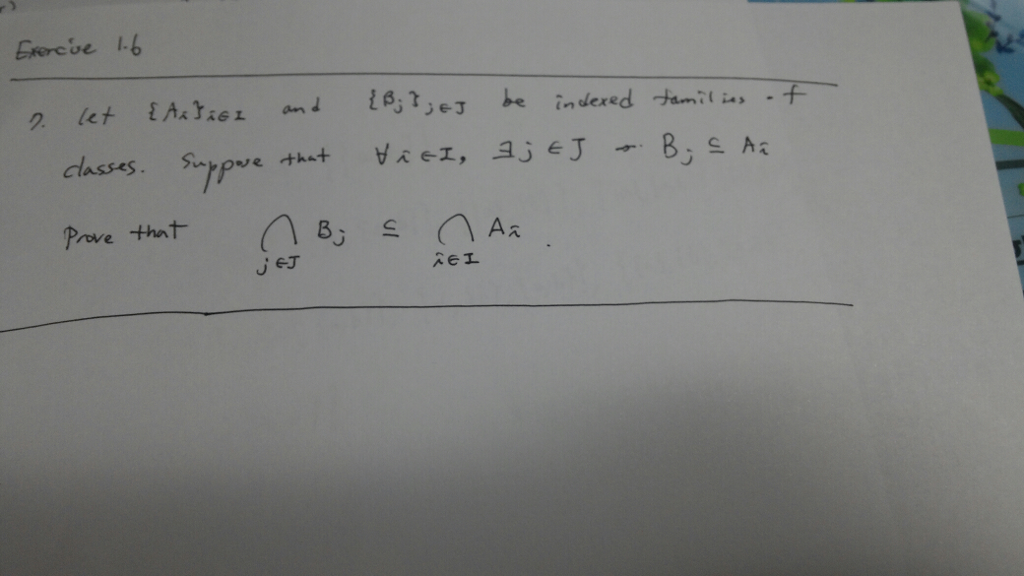 Exercise 1.6
7. Let {Aᵢ}ᵢ∈I and {Bⱼ}ⱼ∈J be indexed families of
classes. Suppose that ∀ i ∈ I, ∃ j ∈ J Bⱼ ⊆ Aᵢ
Prove that ⋂ Bⱼ ⊆ ⋂ Aᵢ .
j∈J i∈I